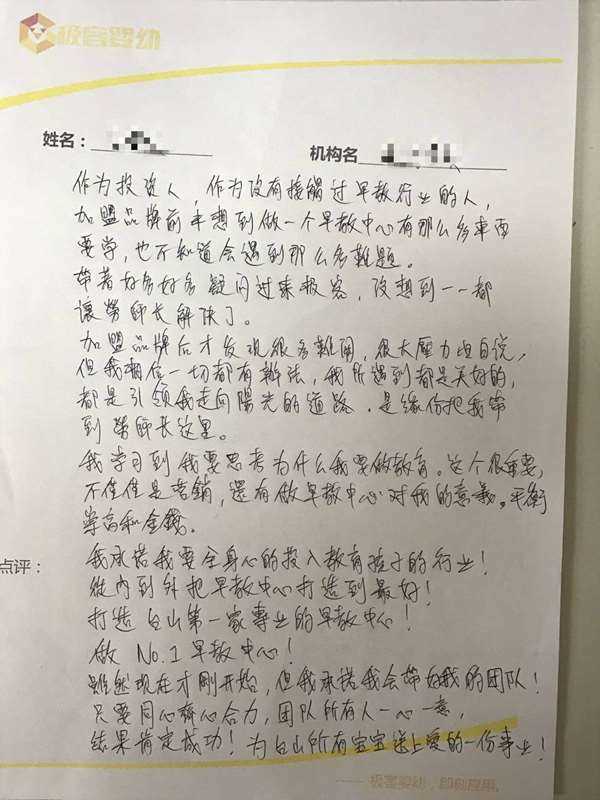 极客婴幼
姓名：
机构名
作为投资人，作为没有接觸过早教行业的人，
加盟品牌前未想到做一个早教中心有那么多東西
要学，也不知道会遇到那么多難題。
带着好多好多疑问过来极客，没想到一一都
讓勞師长解决了。
加盟品牌后才发现很多難関，很大壓力
但我相信一切都有辦法，我所遇到都是美好的，
都是引领我走向陽光的道路，是缘份把我带
到勞師长这里。
我学习到我要思考为什么我要做教育。这个很重要，
不僅僅是营銷，還有做早教中心对我的意義。平衡
和金錢。
点评：
我承诺我要全身心的投入教育孩子的行业！
從内到外把早教中心打造到最好！
打造台山第一家專业的早教中心！
做 No.1 早教中心！
雖然现在才剛开始，但我承诺我会带好我的团队！
只要同心齊心合力，团队所有人一心一意，
结果肯定成功！为台山所有宝宝送上爱的一份事业！
——极客婴幼，即刻启用。